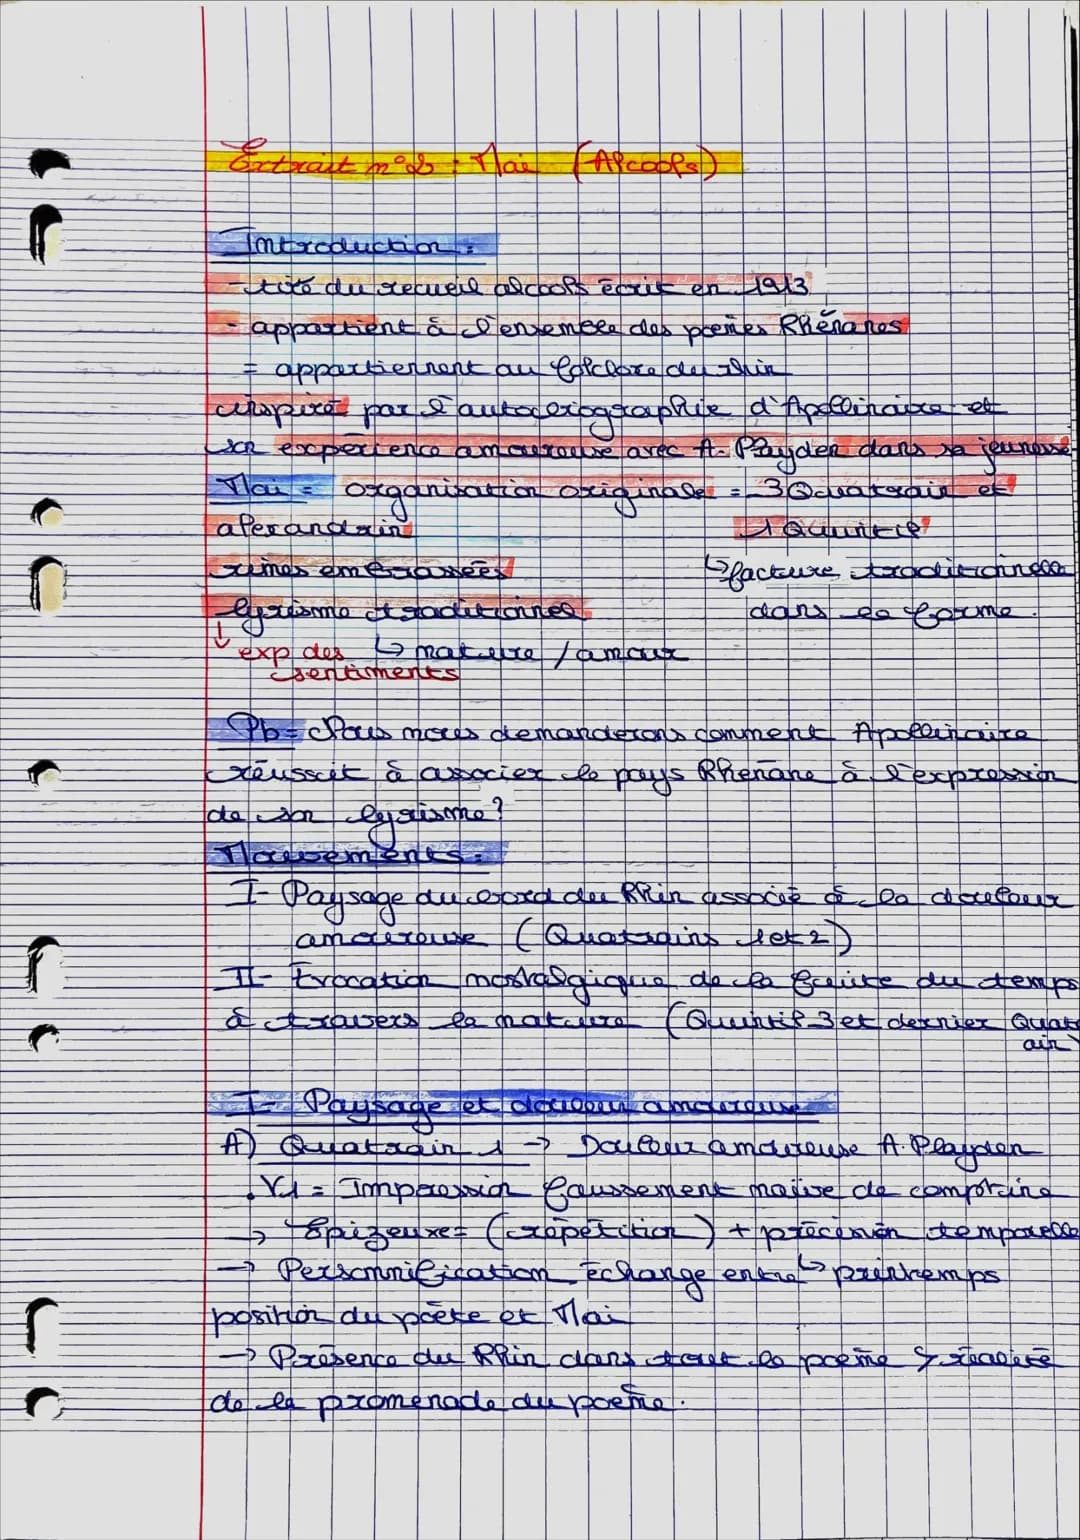 Extrait n°2 : Mai (Alcools)
Introduction :
- tiré du recueil alcools écrit en 1913
- appartient à l'ensemble des poèmes Rhénanes
= appartiennent au folclore du rhin
inspiré par l'autobiographie d'Apollinaire et
son expérience amoureuse avec A. Playden dans sa jeunesse
Mai = organisation originale = 3 Quatrain et
alexandrin 1 Quintil
rimes embrassées ↳ facture traditionnelle
lyrisme traditionnel dans la forme.
↓ exp des ↳ nature / amour
sentiments
Pb = Nous nous demanderons comment Apollinaire
réussit à associer le pays Rhénane à l'expression
de son lyrisme?
Mouvements :
I- Paysage du bord du Rhin associé à la douleur
amoureuse (Quatrains 1 et 2)
II- Evocation nostalgique de la fuite du temps
à travers la nature (Quintil 3 et dernier Quatr
ain)
I- Paysage et douleur amoureuse
A) Quatrain 1 → Douleur amoureuse A. Playden
. V1 = Impression faussement naïve de comptine
→ Epizeuxe = (répétition) + précision temporelle
→ Personnification échange entre ↳ printemps
position du poète et Mai
→ Présence du Rhin dans tout le poème ↳ réalité
de la promenade du poème.